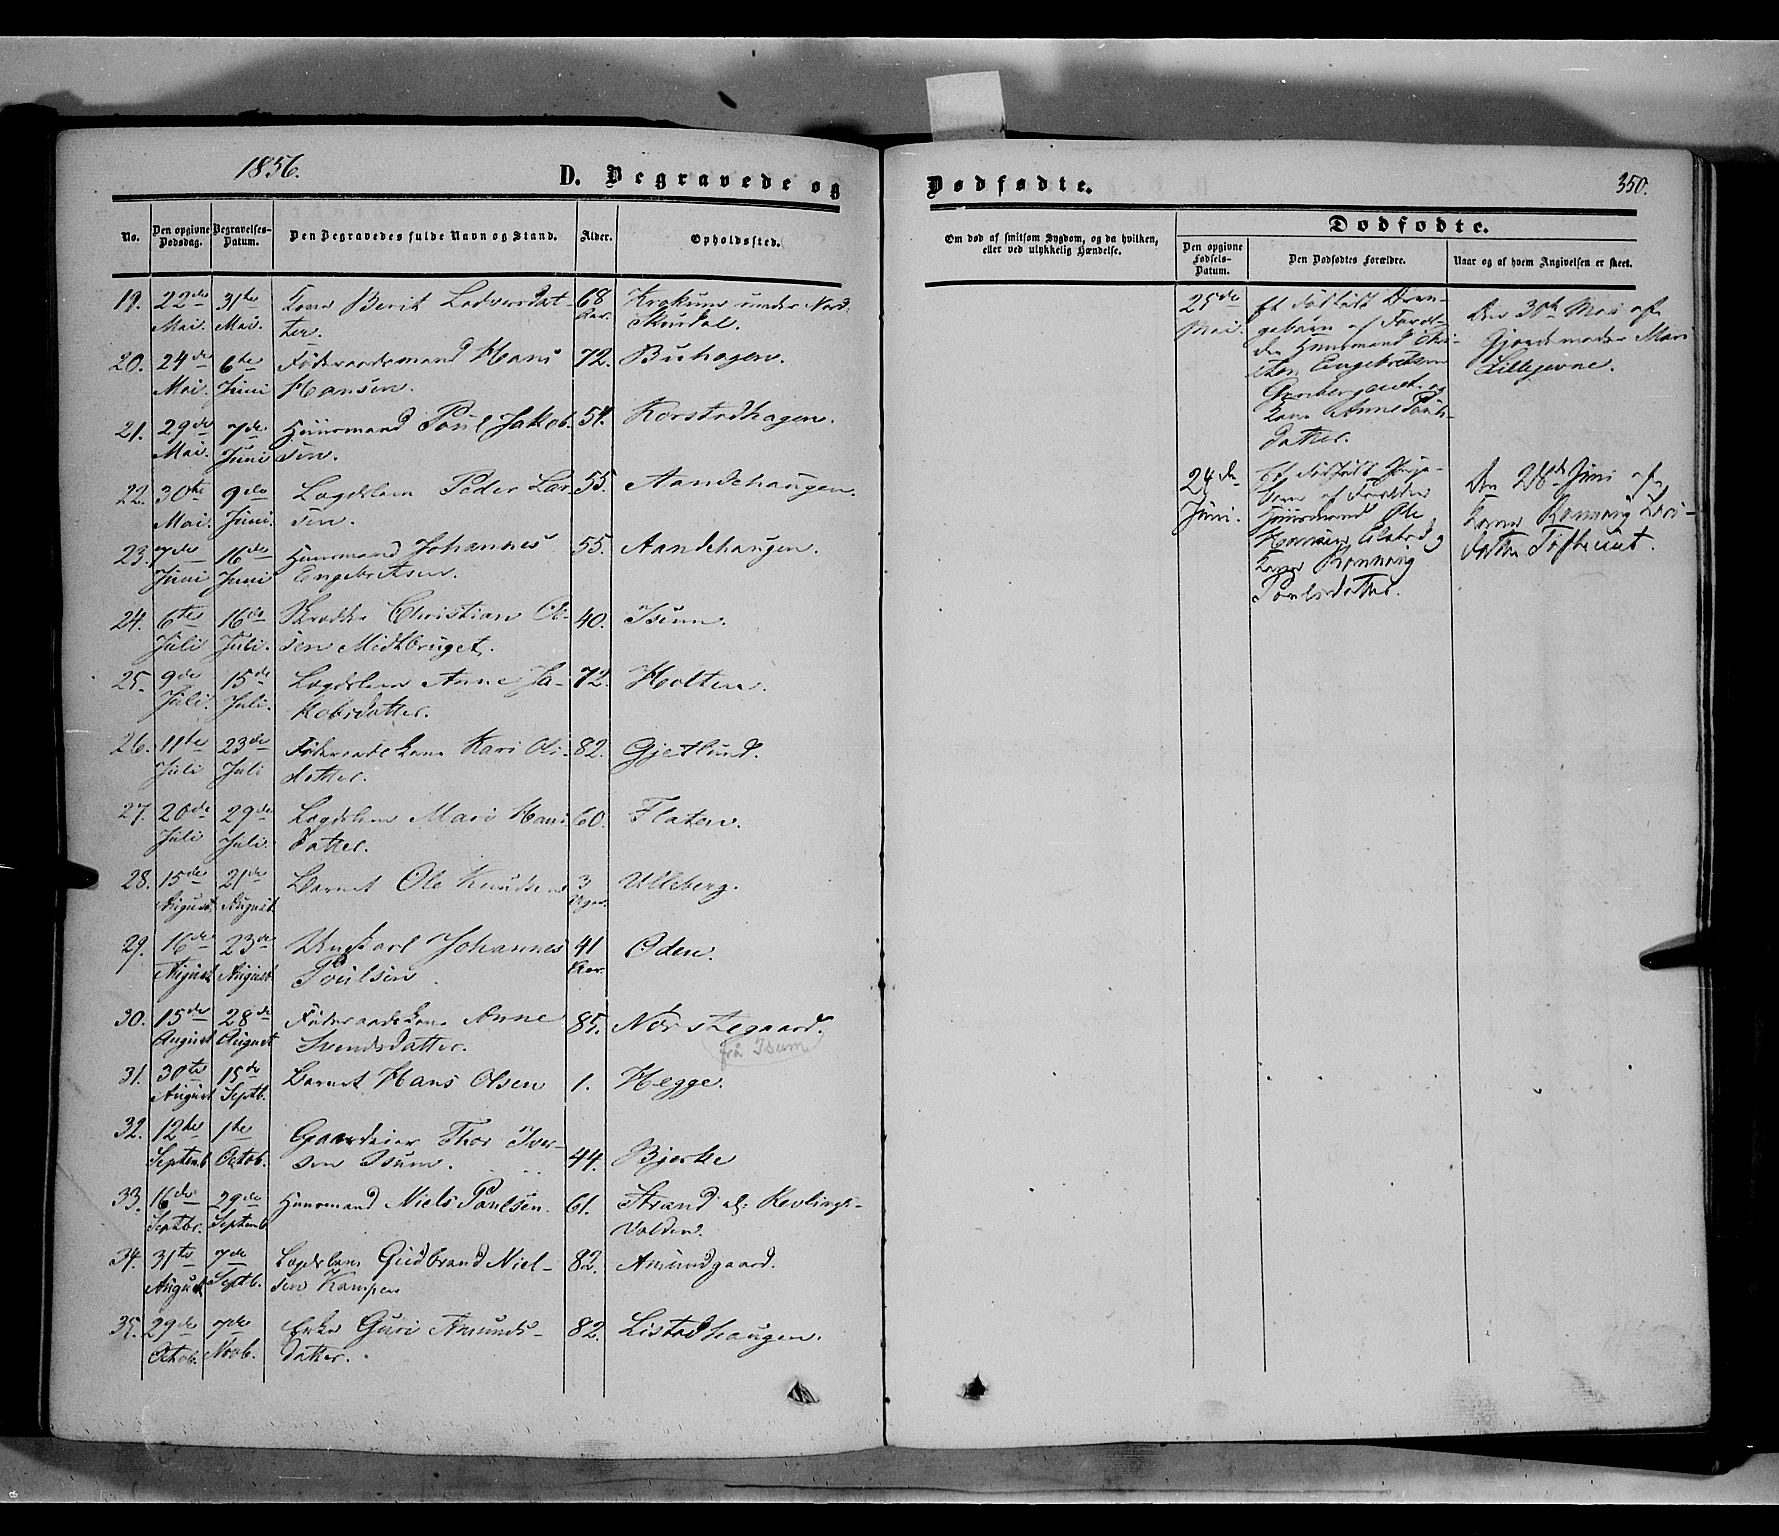 1856.
D. Begravede og
No.
Den opgivne Dødsdag.
Begravelses-Datum.
Den Begravedes fulde Navn og Stand.
Alder.
Opholdssted.
19. 22de 31te Kone Berit Lodversdat- 68 Krokum under Nord
Mai. Mai. ter. Aar. Skurdal.
20. 24de 6te Føderaadsmand Hans 72. Buhagen.
Mai. Juni Hansen.
21. 29de 7de Huusmand Poul Jakob 54. Korstadhagen.
Mai. Juni sen.
22. 30te 9de Lægdslem Peder Lar- 55. Aandehaugen.
Mai. Juni. sen.
23. 7de 16de Huusmand Johannes 55. Aandehaugen.
Juni Juni Engebretsen.
24. 6te 16de Christian Ol- 40. Isum.
Juli Juli. sen Midtbruget.
25. 9de 15de Lægdslem Anne Ja- 72. Holten.
Juli. Juli. kobsdatter.
26. 11te 23de Føderaadskone Kari Ols- 82. Gjetlund.
Juli Juli datter.
27. 20de 29de Lægdslem Mari Hans 60. Flaten.
Juli Juli. datter.
28. 15de 21de Barnet Ole Knudsen 3 Ulleberg.
August. August.
29. 16de 23de Ungkarl Johannes 41 Oden.
August August Poulsen. Aar.
30. 15de 28de Føderaadskone Anne 85. Norstegaard.
August August Svendsdatter. frå Isum
31. 30te 15de Barnet Hans Olsen 1. Hegge.
August Septb.
32. 12te 1te Gaardeier Thor Iver-
Septemb Octob. sen Isum. 44. Bjerke
33. 16de 29de Huusmand Niels Poulsen. 61. Strand al: Kevlings-
Septbr. Septemb volden.
34. 31te 7de Lægdslem Gudbrand Niel- 82. Amundgaard.
August Septb. sen Kampen
35. 29de 7de Enke Guri Amunds- 82. Listadhaugen.
Octob. Novb. datter.
Dødfødte.
350.
Om død af smitsom Sygdom, og da hvilken,
eller ved ulykkelig Hændelse.
Dødfødte.
Den opgivne Fødsels-Datum.
Den Dødfødtes Forældre.
Naar og af hvem Angivelsen er skeet.
25de Et dødfødt Dren- Den 30te Mai af
Mai. gebarn af Foræl- Gjordemoder Mari
dre Huusmand Chri- Lillejevne.
sten Engebretsen
og
Kone Anne Pouls-
datter.
24de Et dødfødt Pige- Den 28de Juni af
Juni. barn af Forældre Kone Rønnaug
Huusmand Ole datter Tofteruet.
Hansen og
Kone Rønnaug
Poulsdatter.